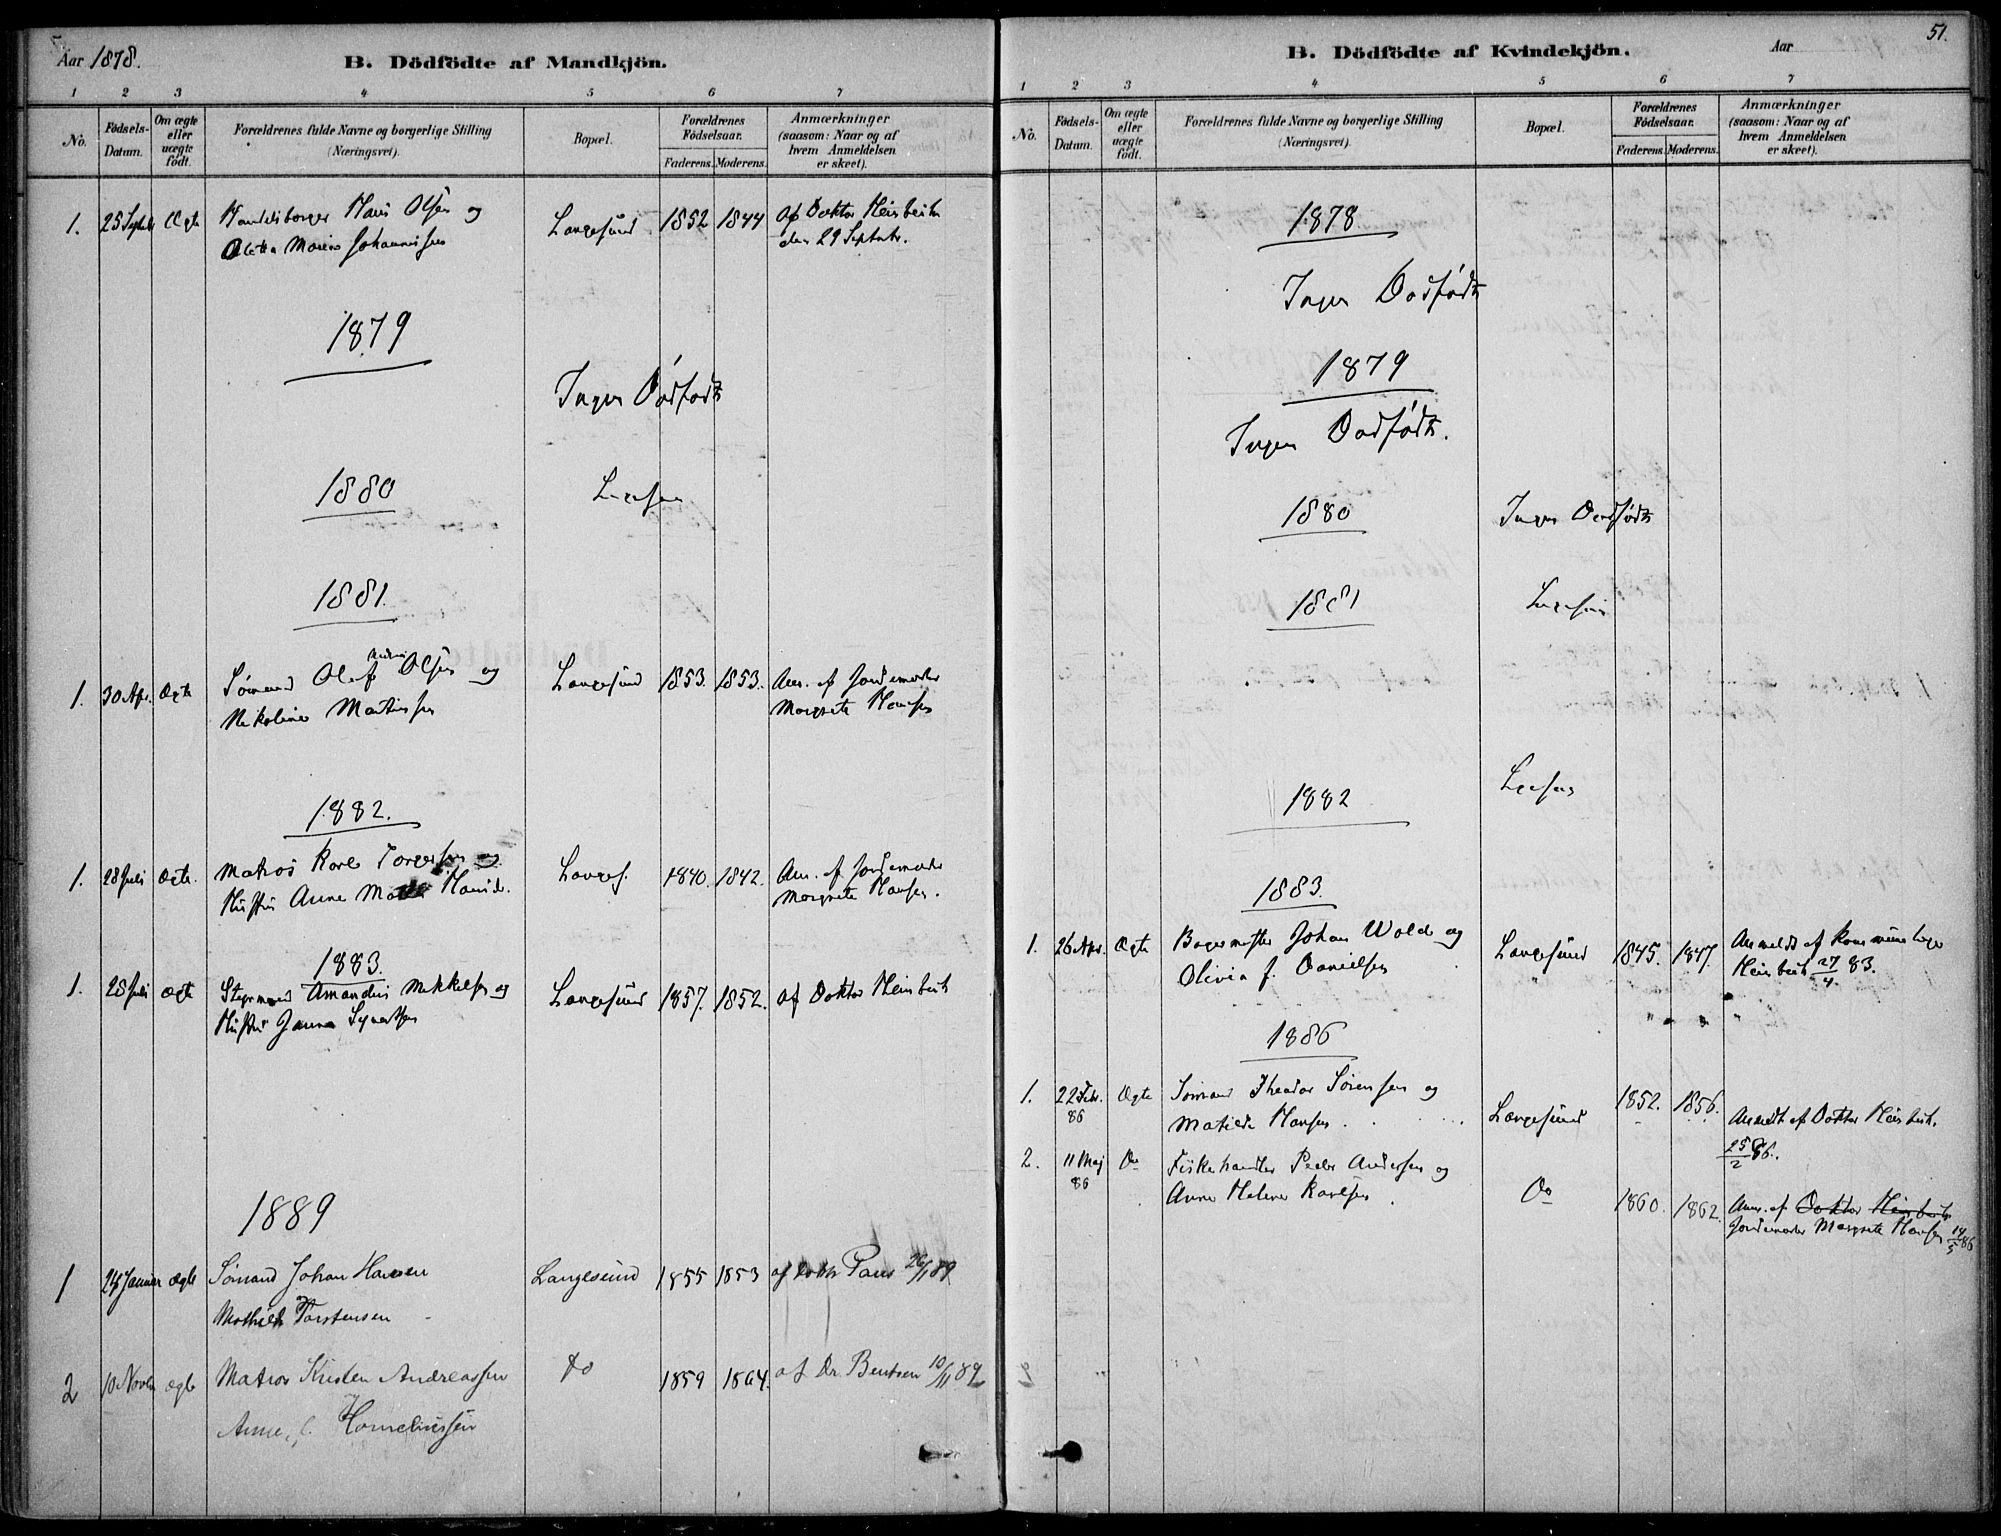 Aar 1878.
B. Dödfödte af Mandkjön.
1 2 3 4 5 6 7
No. Födsels-Datum. Om ægte eller uægte født. Forældrenes fulde Navne og borgerlige Stilling (Næringsvei). Bopæl. Forældrenes Fødselsaar. Faderens. Moderens. Anmærkninger (saasom: Naar og af hvem Anmeldelsen er skeet).
1. 25 Septbr Ægte Handelsborger Hans Olsen og Langesund 1852 1844 Af Doktor Heirbeck
Aletta Marine Johannessen den 29 Septbr.
1879
Ingen Dødfødte
1880
Ingen
1881.
1. 30 Apr. Ægte Sømand Olaf Olsen og Langesund 1853. 1853. Anm. af Jordemoder
Nikoline Mathisen Margrete Hansen
1882.
1. 28 Juli Ægte. Matros Karl Torgersen og Langes. 1840. 1842. Anm. af Jordemoder
Hustru Anne Hansd. Margrete Hansen.
1883.
1. 28 Juli Ægte Styrmand Amandus Mikkelsen og Langesund 1857. 1852. Af Doktor
Hustru Janna
1889
1 24 Januar ægte Sømand Johan Hansen Langesund 1855 1853 af Doktor Paus 26/1 89
Mathilde Torstensen
2 10 Novbr ægte Matros Kristen Andreassen do 1859 1864. af Dr. Bentsen 10/11 89
Anne Korneliussen
51.
B. Dödfödte af Kvindekjön.
Aar
1 2 3 4 5 6 7
No. Födsels-Datum. Om ægte eller uægte født. Forældrenes fulde Navne og borgerlige Stilling (Næringsvei). Bopæl. Forældrenes Fødselsaar. Faderens. Moderens. Anmærkninger (saasom: Naar og af hvem Anmeldelsen er skeet).
1878.
Ingen Dødfødte
1879
Ingen Dødfødte.
1880 Ingen Dødfødte
1881 Ingen
1882 Ingen
1883.
1. 26 Apr. Ægte Bagermester Johan Wold og Langesund 1845. 1847. Anmeldt af Kommunelæge
Olivia J. Danielsen 27/4 83.
1886
1. 22 Febr. 86 Ægte Sømand Theodor Sørensen og Langesund 1852. 1856. Anmeldt af Doktor
Matilde Hansen. 25/2 86.
2. 11 Maj 86 Do Fiskehandler Peder Andersen og Do 1860. 1862. Anm. af Doktor
Anne Helene Karlsen Jordemoder Margrete Hansen 14/5 86